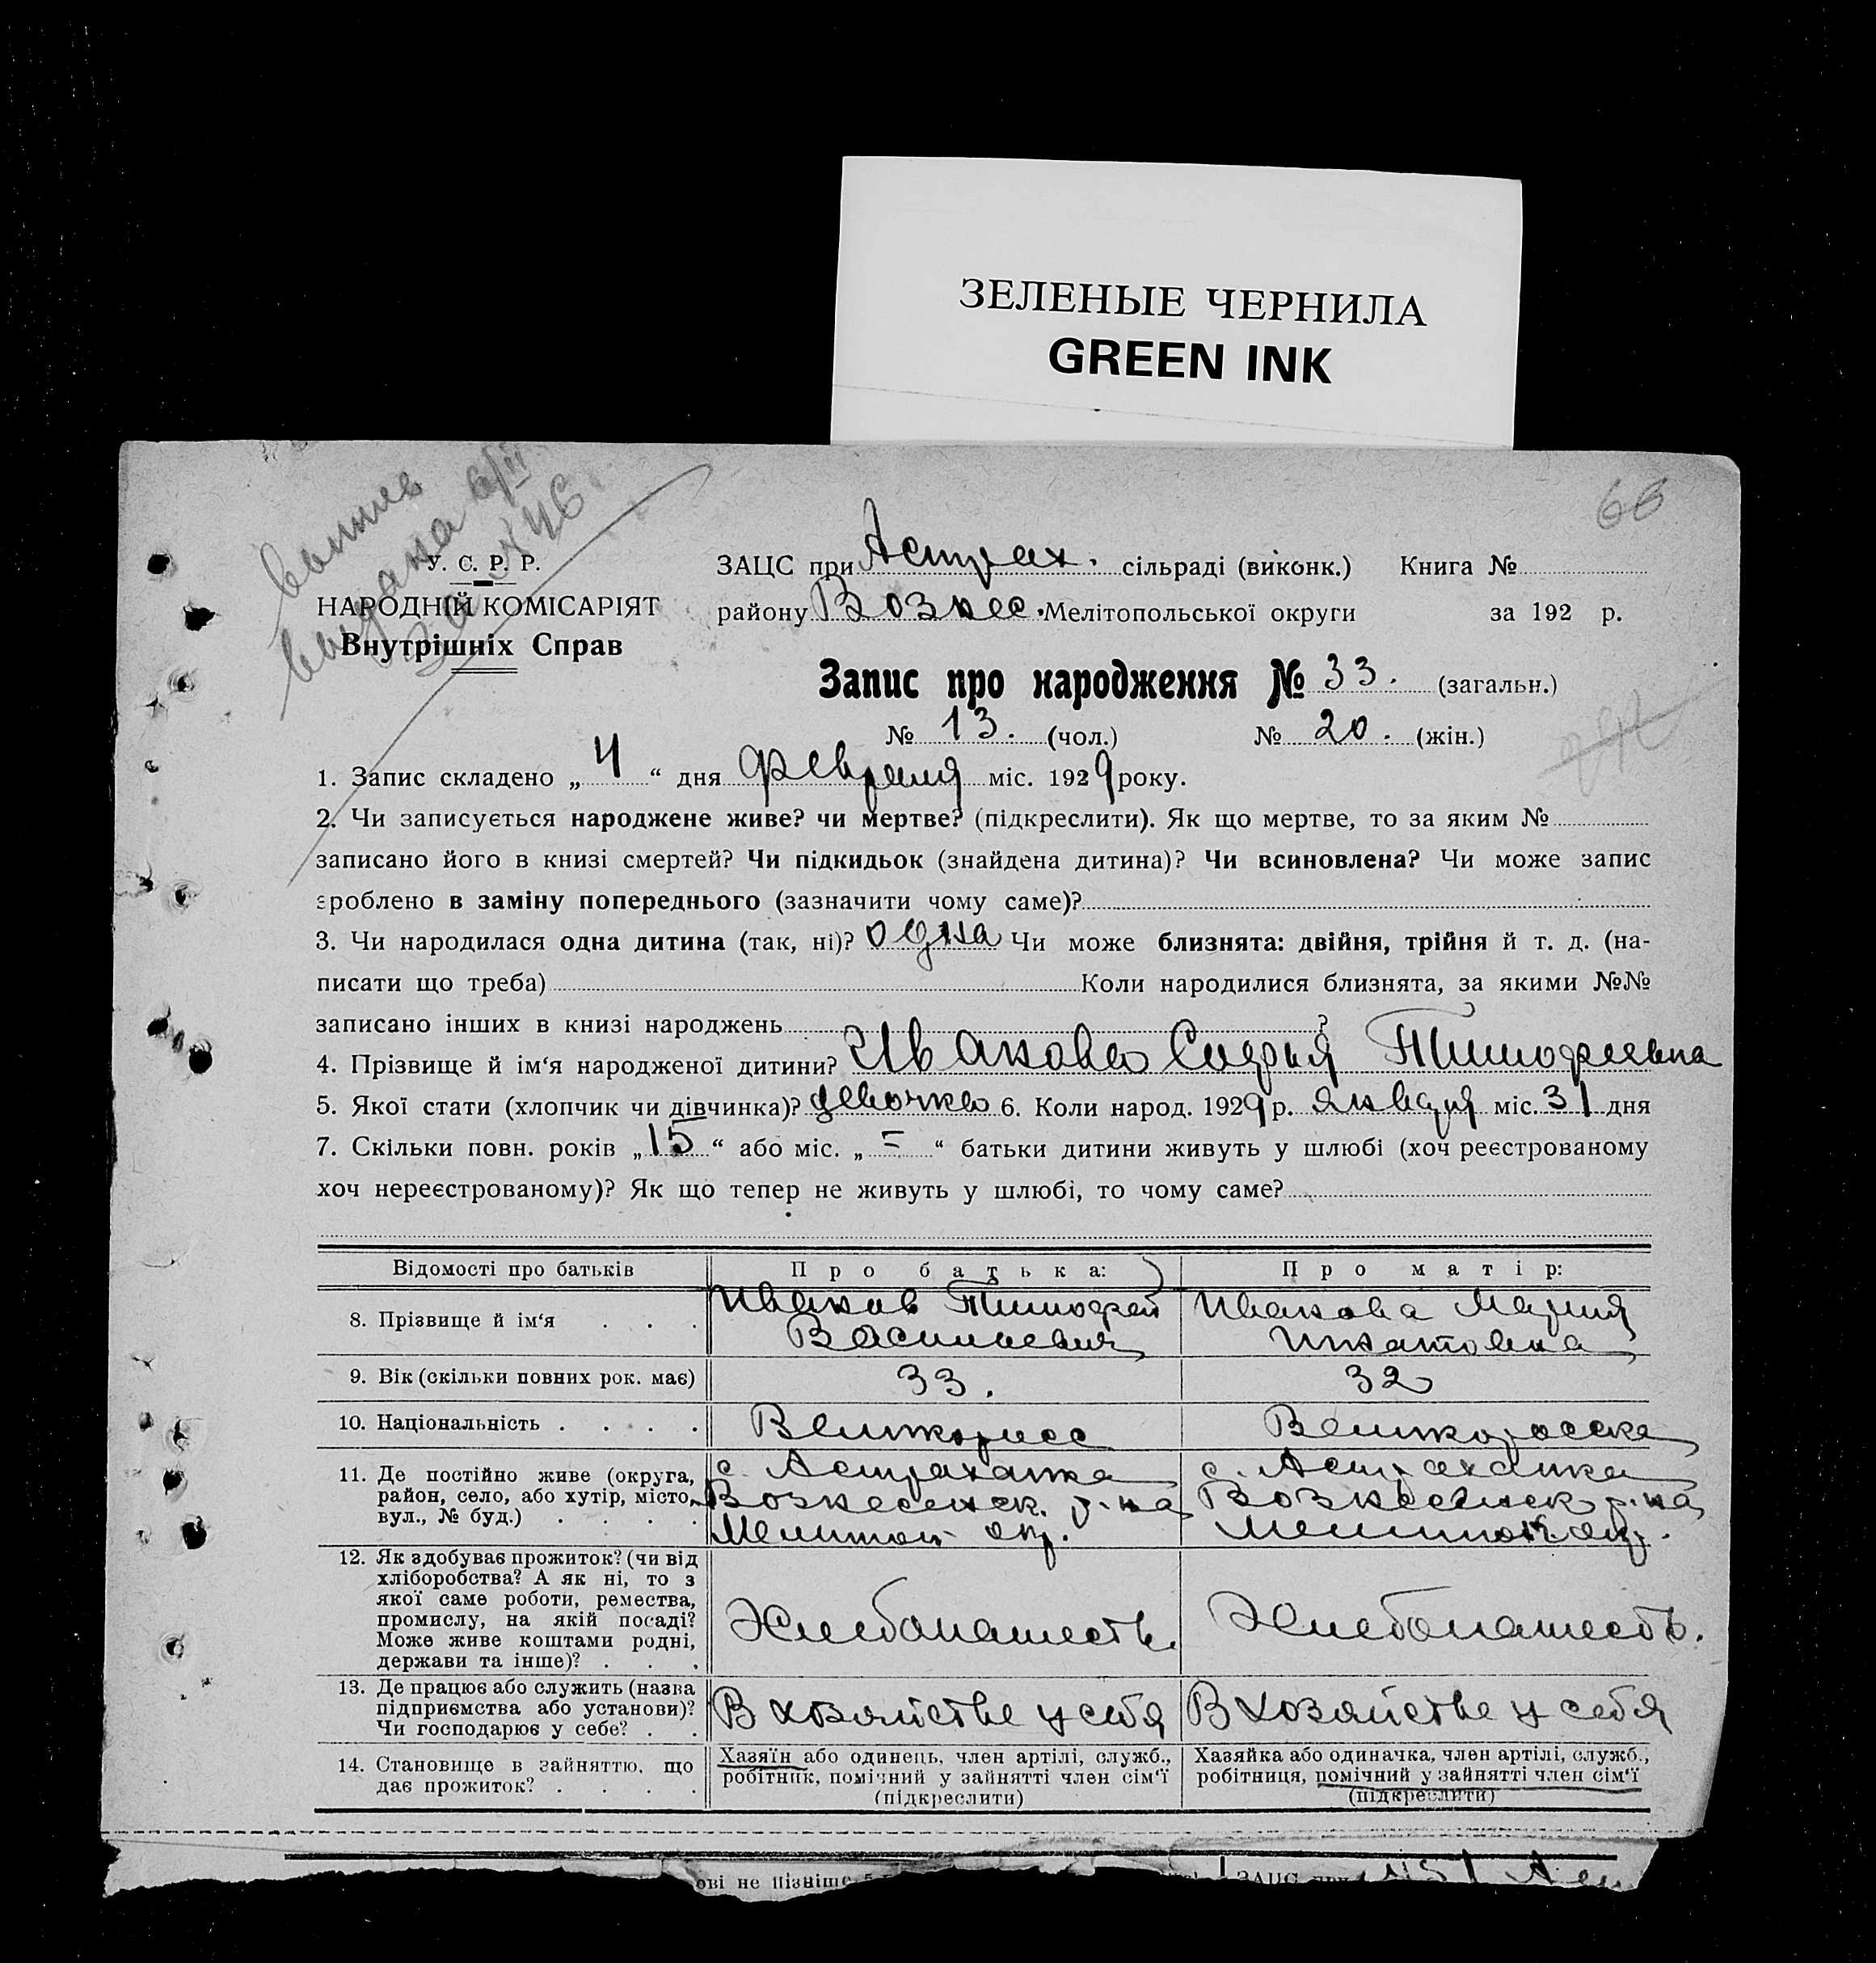 ЗЕЛЕНЫЕ ЧЕРНИЛА
GREEN INK
68
выпись
выдана 6/II
за № 46
У. С. Р. Р.
НАРОДНІЙ КОМІСАРІЯТ
Внутрішніх Справ
ЗАЦС при Астрах. сільраді (виконк.) Книга №
району Вознес. Мелітопольської округи за 192 р.
Запис про народження № 33. (загальн.)
№ 13. (чол.) № 20. (жін.)
1. Запис складено „ 4 “ дня февраля міс. 1929 року.
2. Чи записується народжене живе? чи мертве? (підкреслити). Як що мертве, то за яким №
записано його в книзі смертей? Чи підкидьок (знайдена дитина)? Чи всиновлена? Чи може запис
зроблено в заміну попереднього (зазначити чому саме)?
3. Чи народилася одна дитина (так, ні)? одна Чи може близнята: двійня, трійня й т. д. (на-
писати що треба) Коли народилися близнята, за якими №№
записано інших в книзі народжень ?
4. Прізвище й ім‘я народженої дитини? Ивакова Софья Тимофеевна
5. Якої стати (хлопчик чи дівчинка)? девочка 6. Коли народ. 1929 р. января міс. 31 дня
7. Скільки повн. років „ 15 “ або міс. „ = “ батьки дитини живуть у шлюбі (хоч реєстрованому
хоч нереєстрованому)? Як що тепер не живуть у шлюбі, то чому саме?
Відомості про батьків Про батька: Про матір:
8. Прізвище й ім‘я . . . Иваков Тимофей Васильевич Ивакова Мария Игнатовна
9. Вік (скільки повних рок. має) 33. 32
10. Національність . . . . Великоросс Великоросска
11. Де постійно живе (округа, район, село, або хутір, місто, вул., № буд.) . . . . с. Астраханка Вознесенск. р-на Мелитоп. окр. с. Астраханка Вознесенск р-на Мелитоп. окр.
12. Як здобуває прожиток? (чи від хліборобства? А як ні, то з якої саме роботи, ремества, промислу, на якій посаді? Може живе коштами родні, держави та інше)? . . . Хлебопашеств. Хлебопашеств.
13. Де працює або служить (назва підприємства або установи)? Чи господарює у себе? . . В хозяйстве у себя В хозяйстве у себя
14. Становище в зайняттю, що дає прожиток? . . . . Хазяїн або одинець, член артілі, служб., робітник, помічний у зайнятті член сім‘ї (підкреслити) Хазяйка або одиначка, член артілі, служб., робітниця, помічний у зайнятті член сім‘ї (підкреслити)
ові не пізніше 5 ЗАЦС при